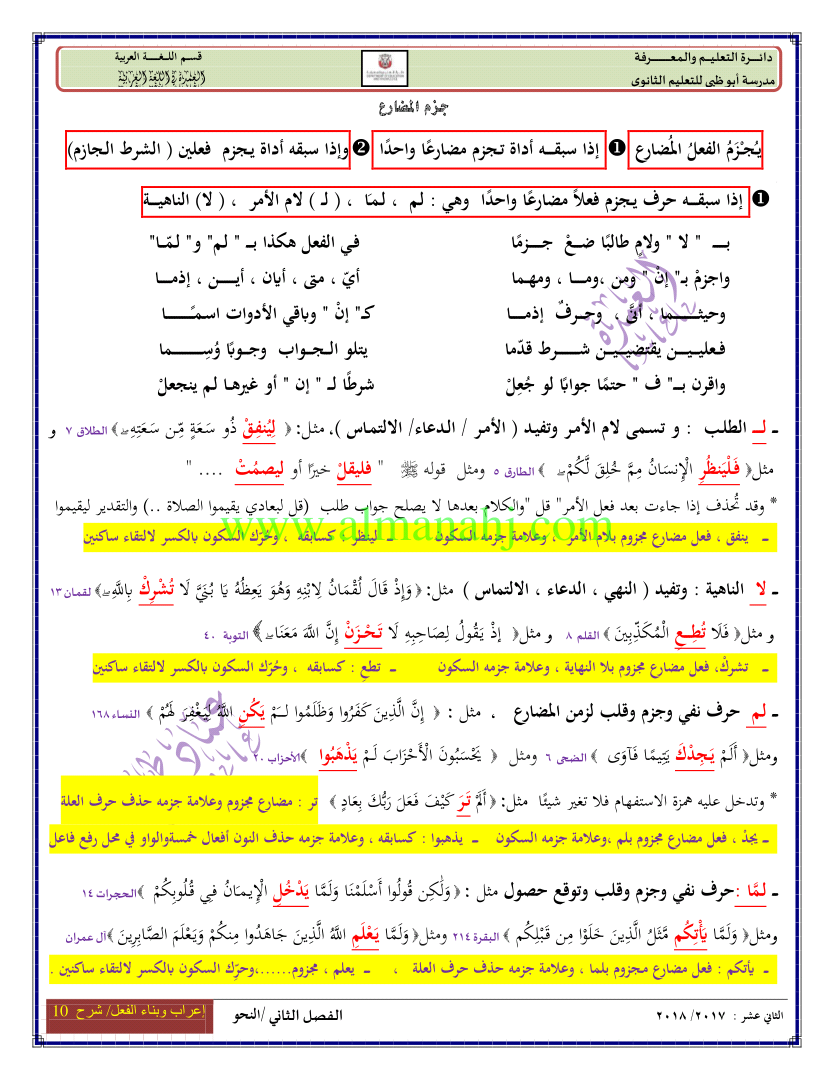 دائـــرة التعليـم والمعــــرفة
قسـم اللـغــة العربية
مدرسة أبو ظبي للتعليم الثانوي
جزم المضارع
يُجْزَمُ الفعلُ المُضارع ❶ إذا سبقـه أداة تجزم مضارعًا واحدًا ❷ وإذا سبقه أداة يجزم فعلين ( الشرط الجازم)
❶ إذا سبقـه حرف يجزم فعلاً مضارعًا واحدًا وهي : لم ، لمّا ، ( لـ ) لام الأمر ، ( لا) الناهيـة
بـــ " لا " ولامٍ طالبًا ضـعْ جــزمًا في الفعل هكذا بـ " لم" و" لمّـا"
واجزمْ بـ" إنْ " ومن ،ومـــا ، ومهـما أيّ ، متى ، أيان ، أيــــن ، إذمـــا
وحيثـــــما ، أنَّى ، وحـرفٌ إذمـــا كـ" إنْ " وباقي الأدوات اسمًـــــا
فـعليـيــن يقتضيـيــن شـــــرط قدّما يتلو الـجـواب وجـوبًا وُسِــــــما
واقرن بــ" ف " حتمًا جوابًا لو جُعِلْ شرطًا لـ " إن " أو غيرهـا لم ينجعلْ
ـ لــ الطلب : و تسمى لام الأمر وتفيد ( الأمر / الـدعاء/ الالتماس )، مثل: ﴿ لِيُنفِقْ ذُو سَعَةٍ مِّن سَعَتِهِ ﴾ الطلاق ٧ و
مثل﴿ فَلْيَنظُرِ الْإِنسَانُ مِمَّ خُلِقَ لَّكُمْ ﴾ الطارق ٥ ومثل قوله ﷺ " فليقلْ خيرًا أو ليصمُتْ .... "
* وقد تُحذف إذا جاءت بعد فعل الأمر" قل "والكلام بعدها لا يصلح جواب طلب (قل لبعادي يقيموا الصلاة ..) والتقدير ليقيموا
ـ ينفق ، فعل مضارع مجزوم بلام الأمر ، وعلامة جزمه السكون ـ لينظر : كسابقه ، وحُرك السكون بالكسر لالتقاء ساكنين
www.almanahj.com
ـ لا الناهية : وتفيد ( النهي ، الدعاء ، الالتماس ) مثل: ﴿وَإِذْ قَالَ لُقْمَانُ لِابْنِهِ وَهُوَ يَعِظُهُ يَا بُنَيَّ لَا تُشْرِكْ بِاللَّهِ﴾ لقمان ١٣
و مثل﴿ فَلَا تُطِعِ الْمُكَذِّبِينَ ﴾ القلم ٨ و مثل﴿ إِذْ يَقُولُ لِصَاحِبِهِ لَا تَحْزَنْ إِنَّ اللَّهَ مَعَنَا ﴾ التوبة ٤٠
ـ تشركْ، فعل مضارع مجزوم بلا النهاية ، وعلامة جزمه السكون ـ تطع : كسابقه ، وحُرّك السكون بالكسر لالتقاء ساكنين
ـ لم حرف نفي وجزم وقلب لزمن المضارع ، مثل : ﴿ إِنَّ الَّذِينَ كَفَرُوا وَظَلَمُوا لَـمْ يَكُنِ اللَّهُ لِيَغْفِرَ لَهُمْ ﴾ النساء ١٦٨
ومثل﴿ أَلَمْ يَجِدْكَ يَتِيمًا فَآوَى ﴾ الضحى ٦ ومثل ﴿ يَحْسَبُونَ الْأَحْزَابَ لَمْ يَذْهَبُوا ﴾الأحزاب ٢٠
* وتدخل عليه همزة الاستفهام فلا تغير شيئًا مثل: ﴿ أَلَمْ تَرَ كَيْفَ فَعَلَ رَبُّكَ بِعَادٍ ﴾ تر : مضارع مجزوم وعلامة جزمه حذف حرف العلة
ـ يجدْ ، فعل مضارع مجزوم بلم ،وعلامة جزمه السكون ـ يذهبوا : كسابقه ، وعلامة جزمه حذف النون أفعال خمسةوالواو في محل رفع فاعل
ـ لمَّا :حرف نفي وجزم وقلب وتوقع حصول مثل : ﴿وَلَٰكِن قُولُوا أَسْلَمْنَا وَلَمَّا يَدْخُلِ الْإِيمَانُ فِي قُلُوبِكُمْ ﴾الحجرات ١٤
ومثل﴿ وَلَمَّا يَأْتِكُم مَّثَلُ الَّذِينَ خَلَوْا مِن قَبْلِكُم ﴾ البقرة ٢١٤ ومثل﴿وَلَمَّا يَعْلَمِ اللَّهُ الَّذِينَ جَاهَدُوا مِنكُمْ وَيَعْلَمَ الصَّابِرِينَ ﴾آل عمران
ـ يأتكم : فعل مضارع مجزوم بلما ، وعلامة جزمه حذف حرف العلة ، ـ يعلم ، مجزوم......،وحرّك السكون بالكسر لالتقاء ساكنين .
الثاني عشر : ٢٠١٧/ ٢٠١٨ الفصل الثاني /النحو إعراب وبناء الفعل/ شرح 10